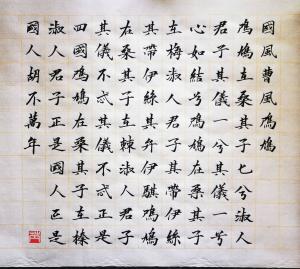 國風曹風鳲鳩
鳲鳩在桑其子七兮淑人
君子其儀一兮其儀一兮
心如結兮鳲鳩在桑其子
在梅淑人君子其帶伊絲
其帶伊絲其弁伊騏鳲鳩
在桑其子在棘淑人君子
其儀不忒其儀不忒正是
四國鳲鳩在桑其子在榛
淑人君子正是國人正是
國人胡不萬年